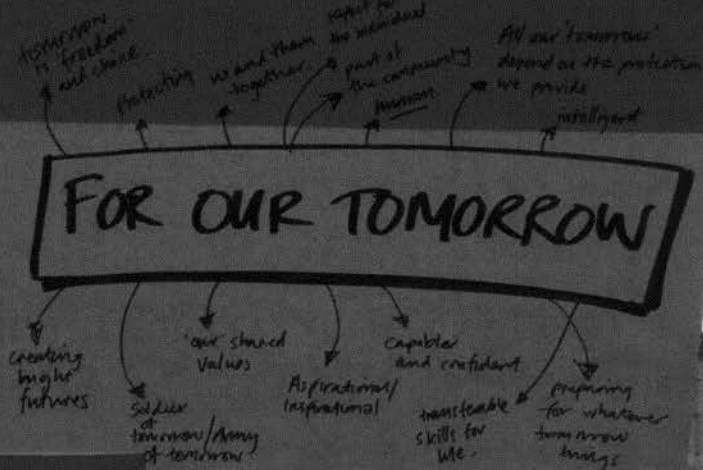 tomorrow
is freedom
and choice.
Protecting
us and them
together
respect for
the individual
part of
the community
human
All our 'tomorrows'
depend on the protection
we provide
intelligent
FOR OUR TOMORROW
creating
bright
futures
Soldier
of
tomorrow/Army
of tomorrow
'our' shared
values
Aspirational/
Inspirational
capable
and confident
transferable
skills for
life.
preparing
for whatever
tomorrow
brings